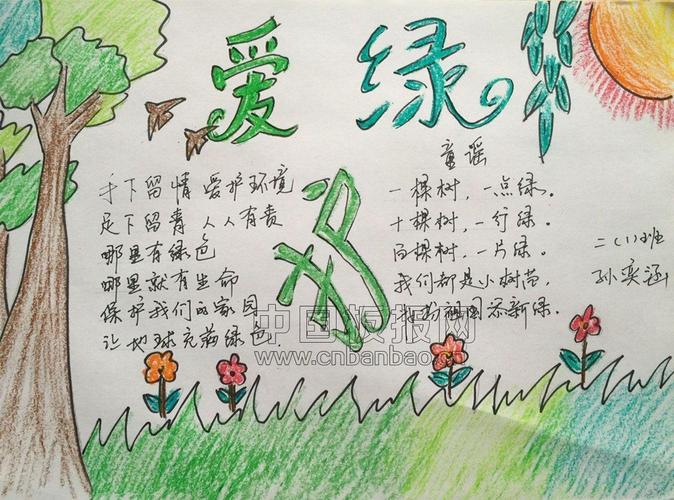 爱绿
手下留情 爱护环境
足下留青 人人有责
哪里有绿色
哪里就有生命
保护我们的家园
让地球充满绿色
童谣
一棵树，一点绿。
十棵树，一行绿。
百棵树，一片绿。
我们都是小树苗，
我为祖国添新绿。
二(1)班
孙奕涵
中国板报网
www.cnbanbao.